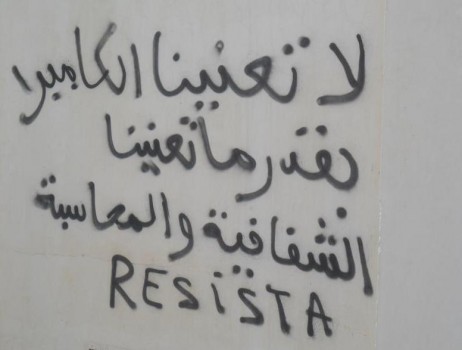 لا تعنينا الكاميرا
بقدر ما تعنينا
الشفافية والمحاسبة
RESiSTA